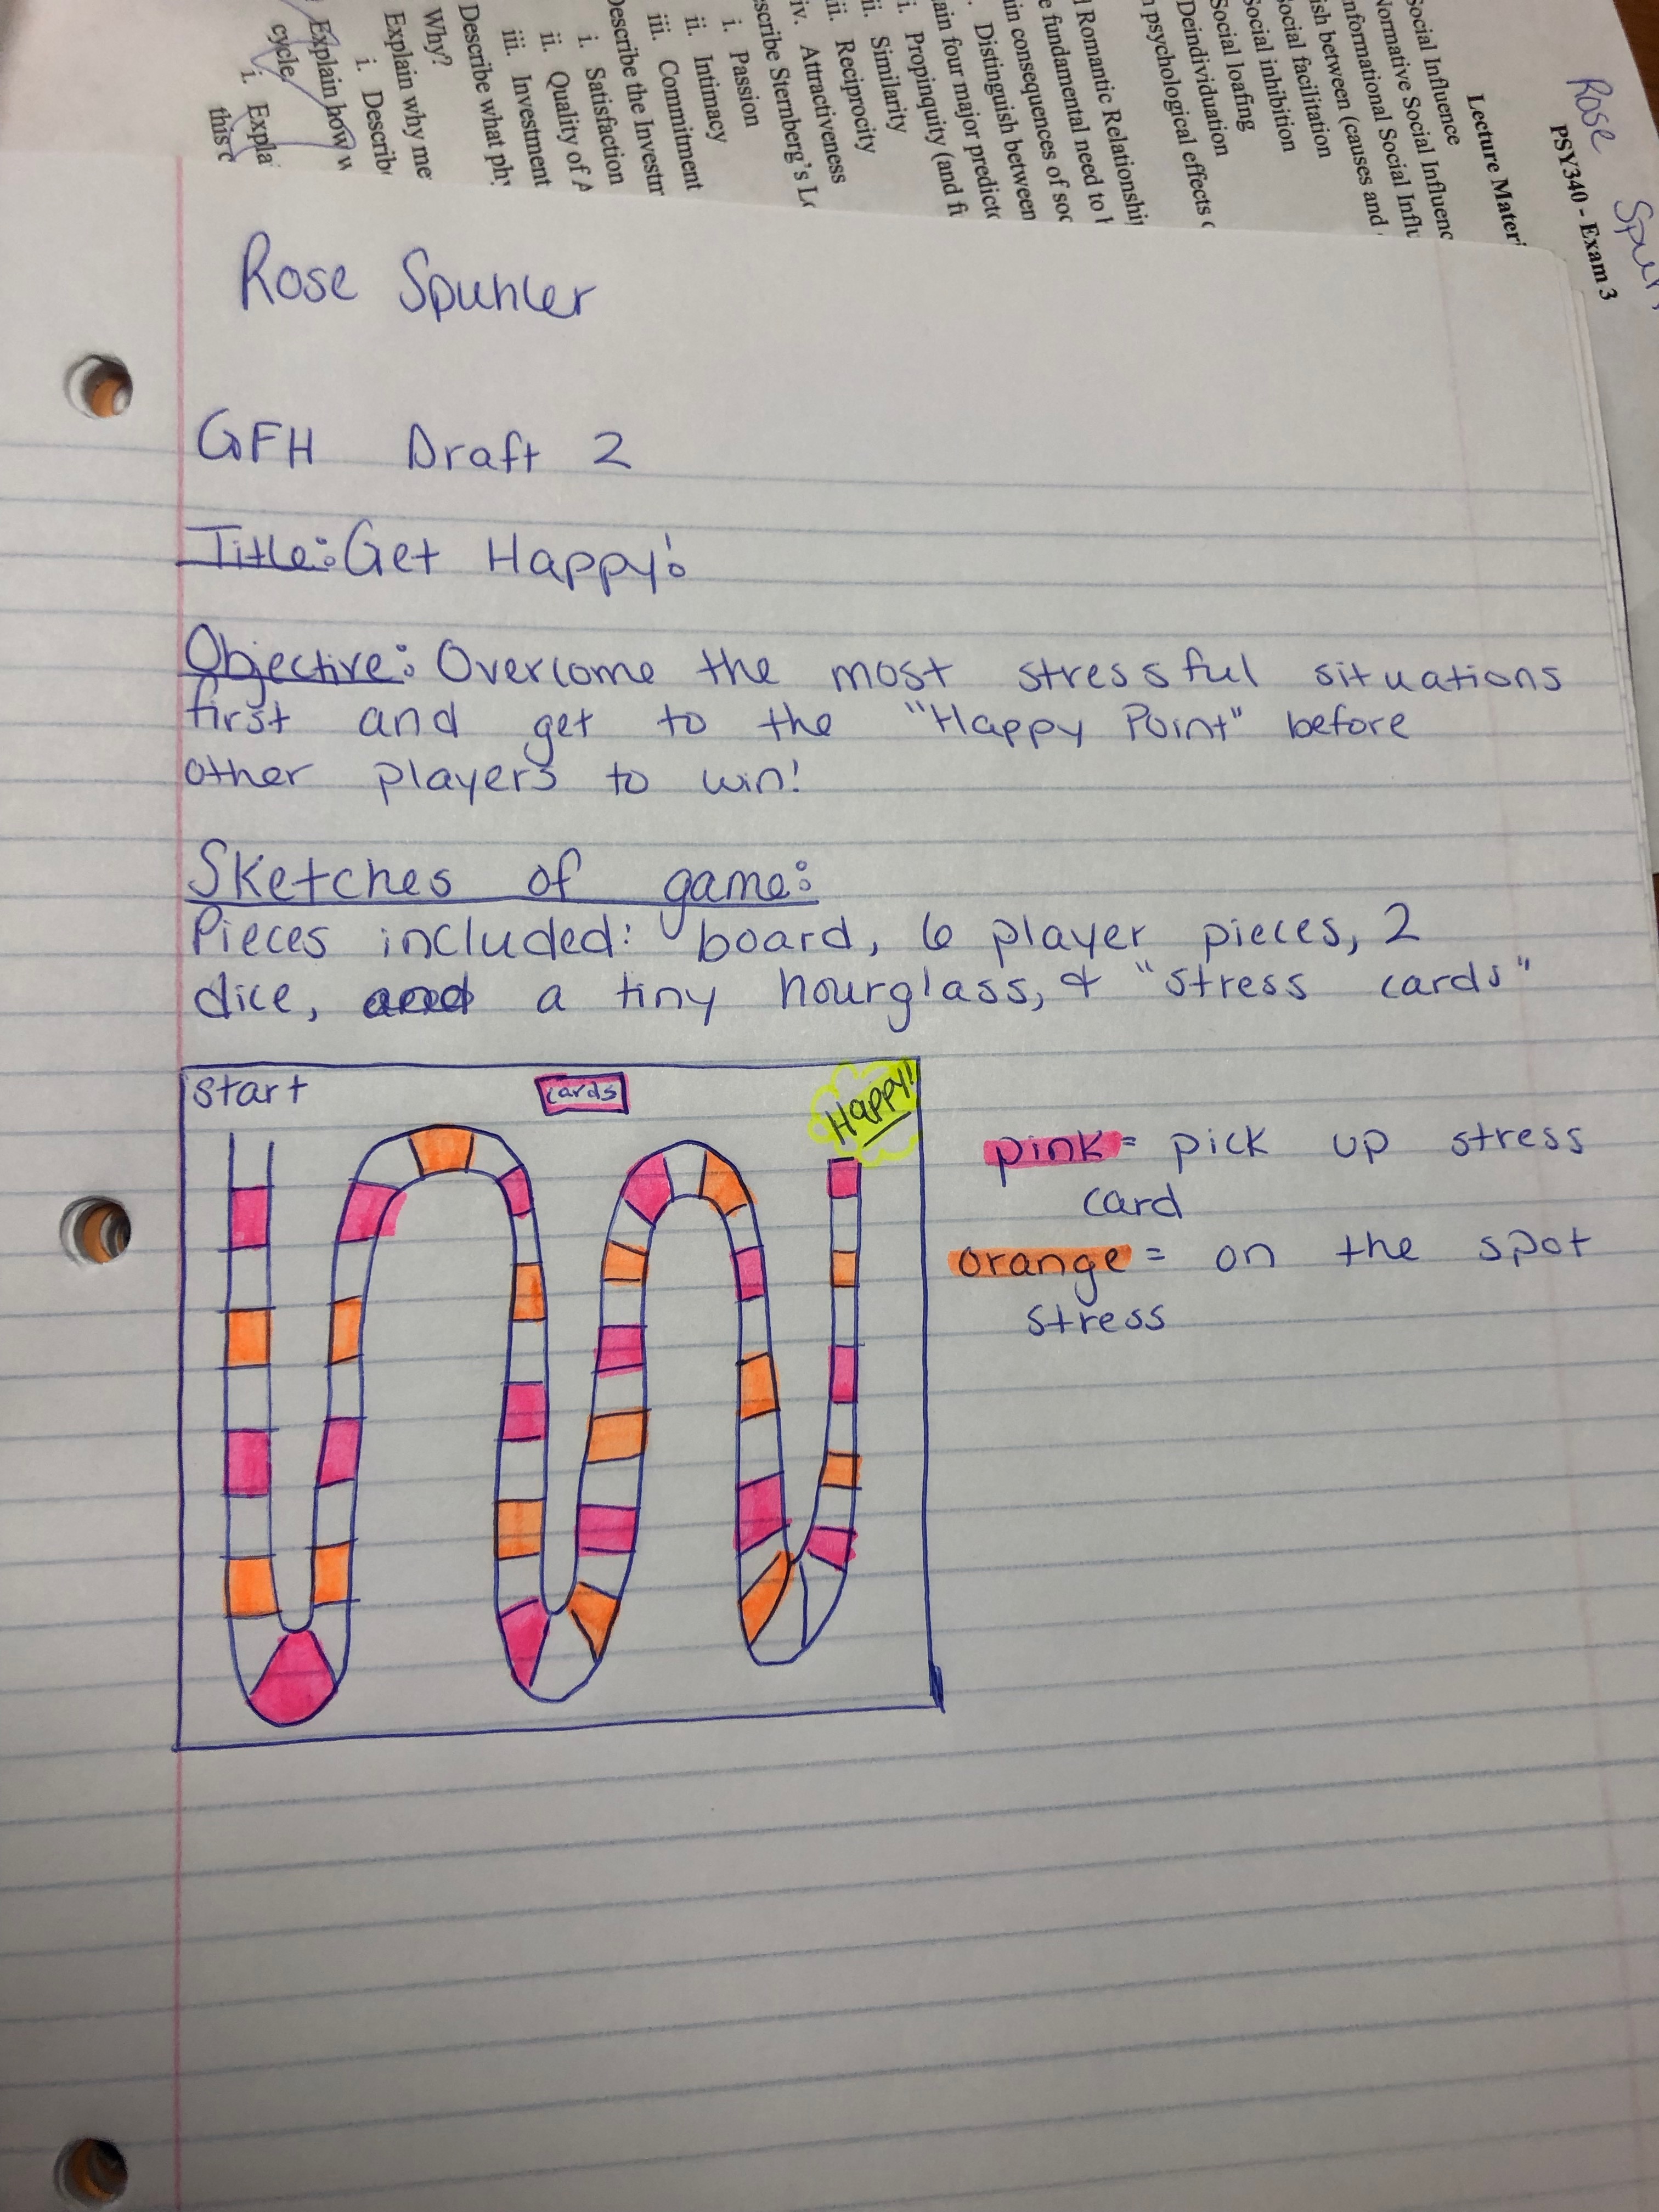 Rose Spunler
GFH Draft 2
Title: Get Happy!
Objective: Overcome the most stressful situations
first and get to the "Happy Point" before
other players to win!
Sketches of game:
Pieces included: board, 6 player pieces, 2
dice, and a tiny hourglass, & "stress cards"
start
cards
Happy!
pink = pick up stress
card
orange = on the spot
stress
Rose
PSY340 - Exam 3
Lecture Materi
Social Influence
Normative Social Influenc
Informational Social Influ
ish between (causes and
Social facilitation
Social inhibition
Social loafing
Deindividuation
psychological effects
Romantic Relationshi
fundamental need to
in consequences of soc
Distinguish between
ain four major predicto
i. Propinquity (and
ii. Similarity
iii. Reciprocity
iv. Attractiveness
scribe Sternberg's
i. Passion
ii. Intimacy
iii. Commitment
Describe the Investm
i. Satisfaction
ii. Quality of A
iii. Investment
Describe what phy
Why?
Explain why me
i. Describ
Explain how w
cycle.
i. Expla
this c